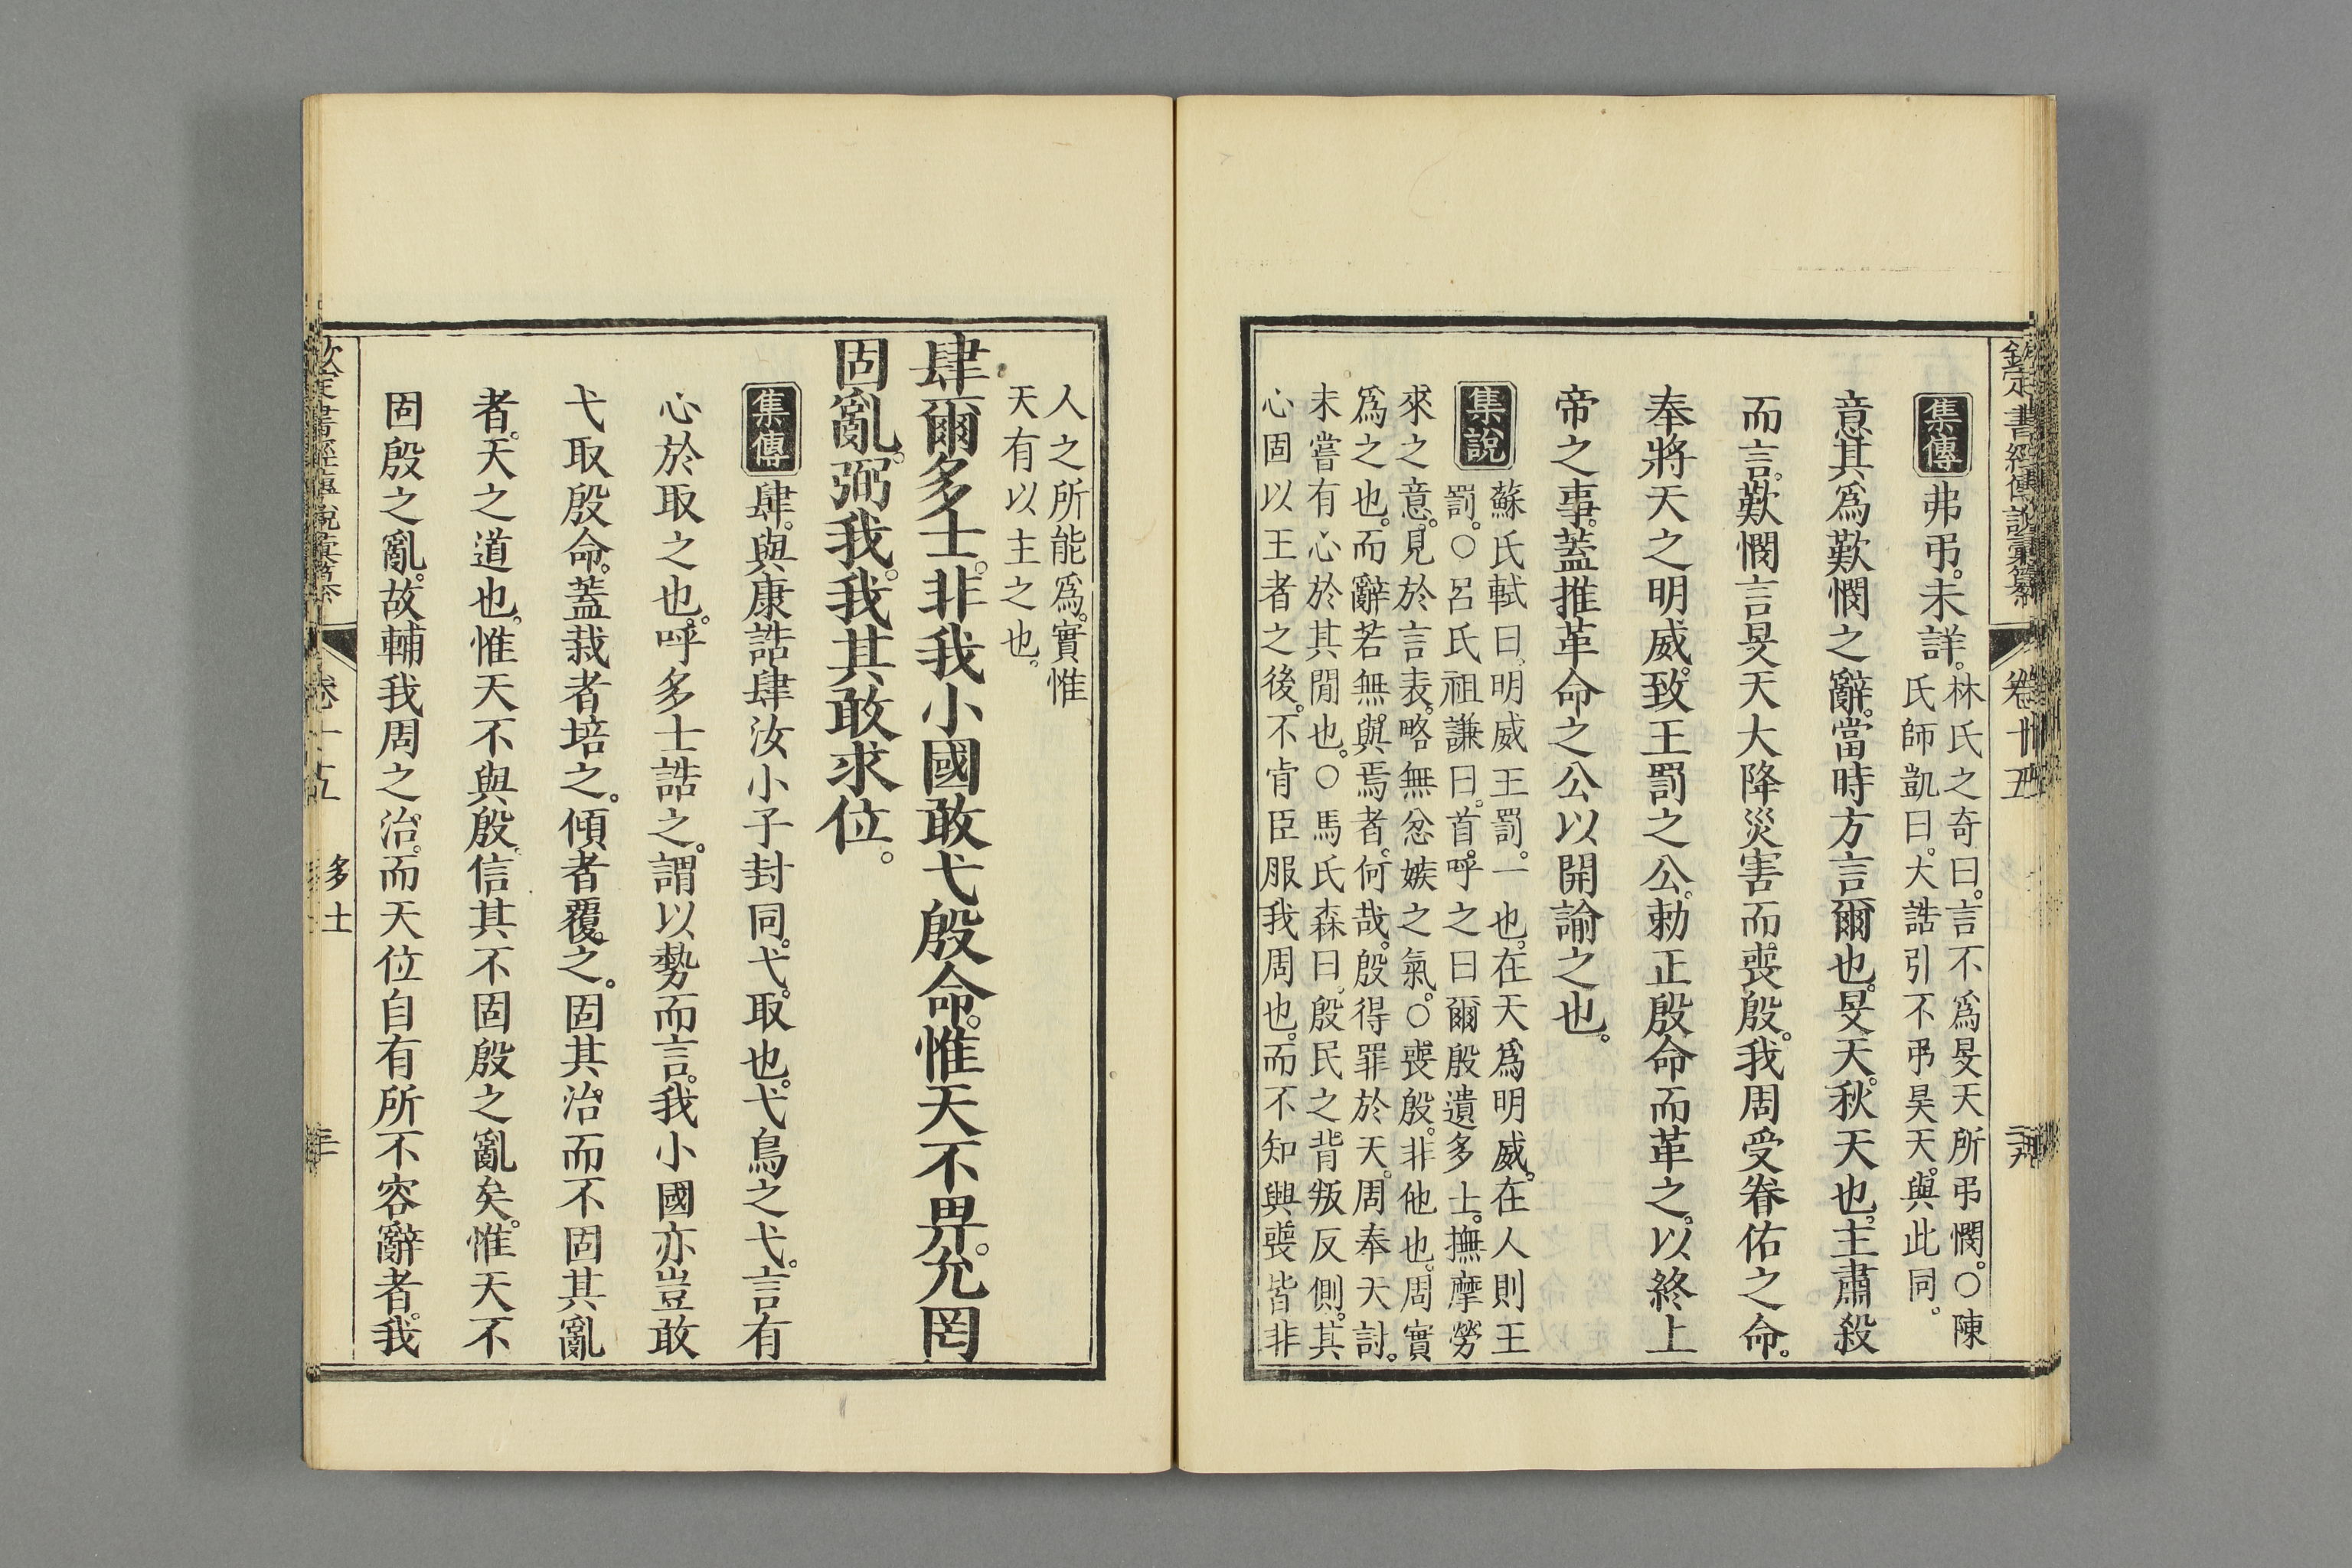 集傳 弗弔。未詳。林氏之奇曰。言不爲旻天所弔憫。○陳
氏師凱曰。大誥引不弔昊天。與此同。
意其爲歎憫之辭。當時方言爾也。旻天。秋天也。主肅殺
而言。歎憫言旻天大降災害而喪殷。我周受眷佑之命。
奉將天之明威。致王罰之公。勅正殷命而革之。以終上
帝之事。蓋推革命之公以開諭之也。
集說 蘇氏軾曰。明威王罰。一也。在天爲明威。在人則王
罰。○呂氏祖謙曰。首呼之曰爾殷遺多士。撫摩勞
來之意。見於言表。略無忿嫉之氣。○喪殷。非他也。周實
爲之也。而辭若無與焉者。何哉。殷得罪於天。周奉天討。
未嘗有心於其閒也。○馬氏森曰。殷民之背叛反側。其
心固以王者之後。不肯臣服我周也。而不知興喪皆非
人之所能爲。實惟
天有以主之也。
肆爾多士。非我小國敢弋殷命。惟天不畀。允罔
固亂。弼我。我其敢求位。
集傳 肆。與康誥肆汝小子封同。弋。取也。弋鳥之弋。言有
心於取之也。呼多士誥之。謂以勢而言。我小國亦豈敢
弋取殷命。蓋栽者培之。傾者覆之。固其治而不固其亂
者。天之道也。惟天不與殷。信其不固殷之亂矣。惟天不
固殷之亂。故輔我周之治。而天位自有所不容辭者。我
多士